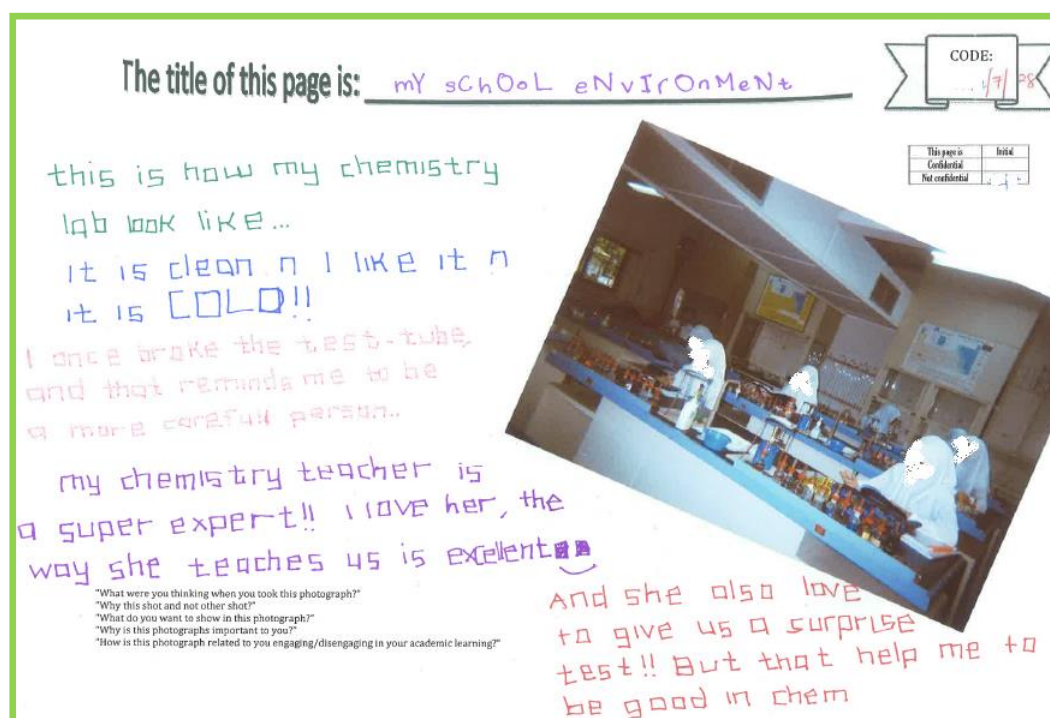 The title of this page is: mY sChOoL eNvIrOnMeNt
CODE:
1/7/ 08
This page is Initial
Confidential
Not confidential
this is how my chemistry
lab look like...
it is clean n I like it n
it is COLD!!
I once broke the test-tube,
and that reminds me to be
a more carefull person..
my chemistry teacher is
a super expert!! i love her, the
way she teaches us is excellent
"What were you thinking when you took this photograph?"
"Why this shot and not other shot?"
"What do you want to show in this photograph?"
"Why is this photographs important to you?"
"How is this photograph related to you engaging/disengaging in your academic learning?"
And she also love
to give us a surprise
test!! But that help me to
be good in chem